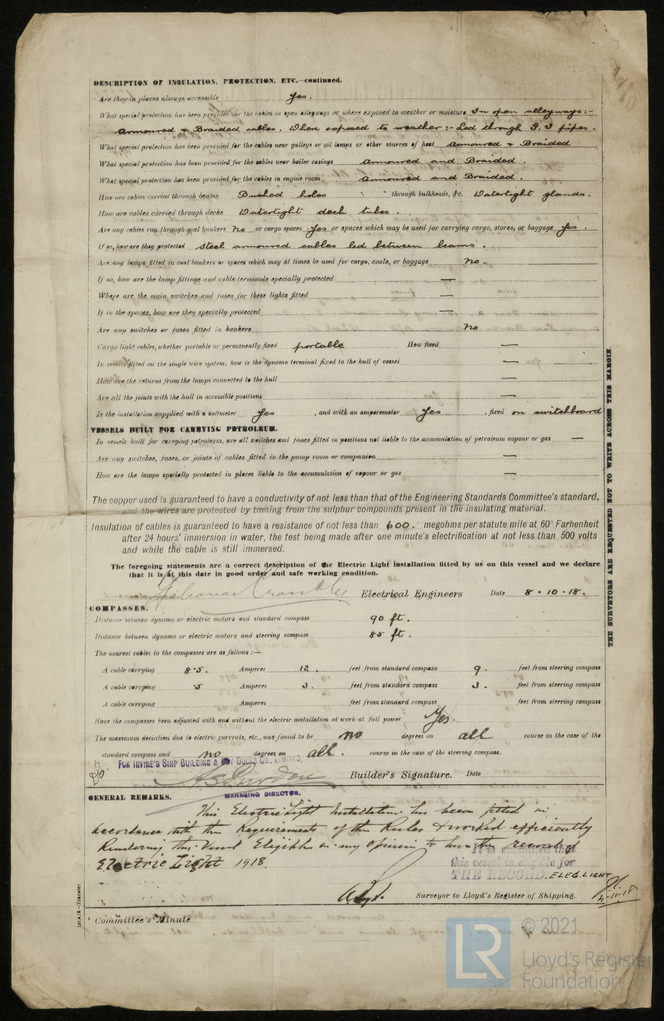 DESCRIPTION OF INSULATION, PROTECTION, ETC.—continued.
Are they in places always accessible Yes.
What special protection has been provided for the cables in open alleyways or where exposed to weather or moisture In open alleyways:-
Armoured & Braided cables. When exposed to weather:- Led through G.I pipes.
What special protection has been provided for the cables near galleys or oil lamps or other sources of heat Armoured & Braided
What special protection has been provided for the cables near boiler casings Armoured and Braided.
What special protection has been provided for the cables in engine room Armoured and Braided.
How are cables carried through beams Bushed holes through bulkheads, &c. Watertight glands.
How are cables carried through decks Watertight deck tubes.
Are any cables run through coal bunkers No or cargo spaces Yes or spaces which may be used for carrying cargo, stores, or baggage Yes.
If so, how are they protected Steel armoured cables led between beams.
Are any lamps fitted in coal bunkers or spaces which may at times be used for cargo, coals, or baggage No.
If so, how are the lamp fittings and cable terminals specially protected —
Where are the main switches and fuses for these lights fitted —
If in the spaces, how are they specially protected —
Are any switches or fuses fitted in bunkers No
Cargo light cables, whether portable or permanently fixed portable How fixed —
In vessels fitted on the single wire system, how is the dynamo terminal fixed to the hull of vessel —
How are the returns from the lamps connected to the hull —
Are all the joints with the hull in accessible positions —
Is the installation supplied with a voltmeter Yes, and with an amperemeter Yes, fixed on switchboard
VESSELS BUILT FOR CARRYING PETROLEUM.
In vessels built for carrying petroleum, are all switches and fuses fitted in positions not liable to the accumulation of petroleum vapour or gas —
Are any switches, fuses, or joints of cables fitted in the pump room or companion —
How are the lamps specially protected in places liable to the accumulation of vapour or gas —
The copper used is guaranteed to have a conductivity of not less than that of the Engineering Standards Committee's standard,
and the wires are protected by tinning from the sulphur compounds present in the insulating material.
Insulation of cables is guaranteed to have a resistance of not less than 600. megohms per statute mile at 60° Farhenheit
after 24 hours' immersion in water, the test being made after one minute's electrification at not less than 500 volts
and while the cable is still immersed.
The foregoing statements are a correct description of the Electric Light installation fitted by us on this vessel and we declare
that it is at this date in good order and safe working condition.
Electrical Engineers Date 8.10.18.
COMPASSES.
Distance between dynamo or electric motors and standard compass 90 ft.
Distance between dynamo or electric motors and steering compass 85 ft.
The nearest cables to the compasses are as follows:—
A cable carrying 8.5. Amperes 12. feet from standard compass 9. feet from steering compass
A cable carrying .5 Amperes 3. feet from standard compass 3. feet from steering compass
A cable carrying Amperes feet from standard compass feet from steering compass
Have the compasses been adjusted with and without the electric installation at work at full power Yes.
The maximum deviation due to electric currents, etc., was found to be no degrees on all course in the case of the
standard compass and no degrees on all. course in the case of the steering compass.
FOR IRVINE'S SHIP BUILDING & DRY DOCKS CO., LIMITED,
Builder's Signature. Date
MANAGING DIRECTOR.
GENERAL REMARKS.
This Electric Light Installation has been fitted in
accordance with the Requirements of the Rules & worked efficiently
Rendering this Vessel Eligible in my opinion to have the record of
Electric Light 1918.
It is submitted that
this vessel is eligible for
THE RECORD. ELEC. LIGHT
Surveyor to Lloyd's Register of Shipping.
Committee's Minute
THE SURVEYORS ARE REQUESTED NOT TO WRITE ACROSS THIS MARGIN
© 2021
LR
Lloyd's Register
Foundation